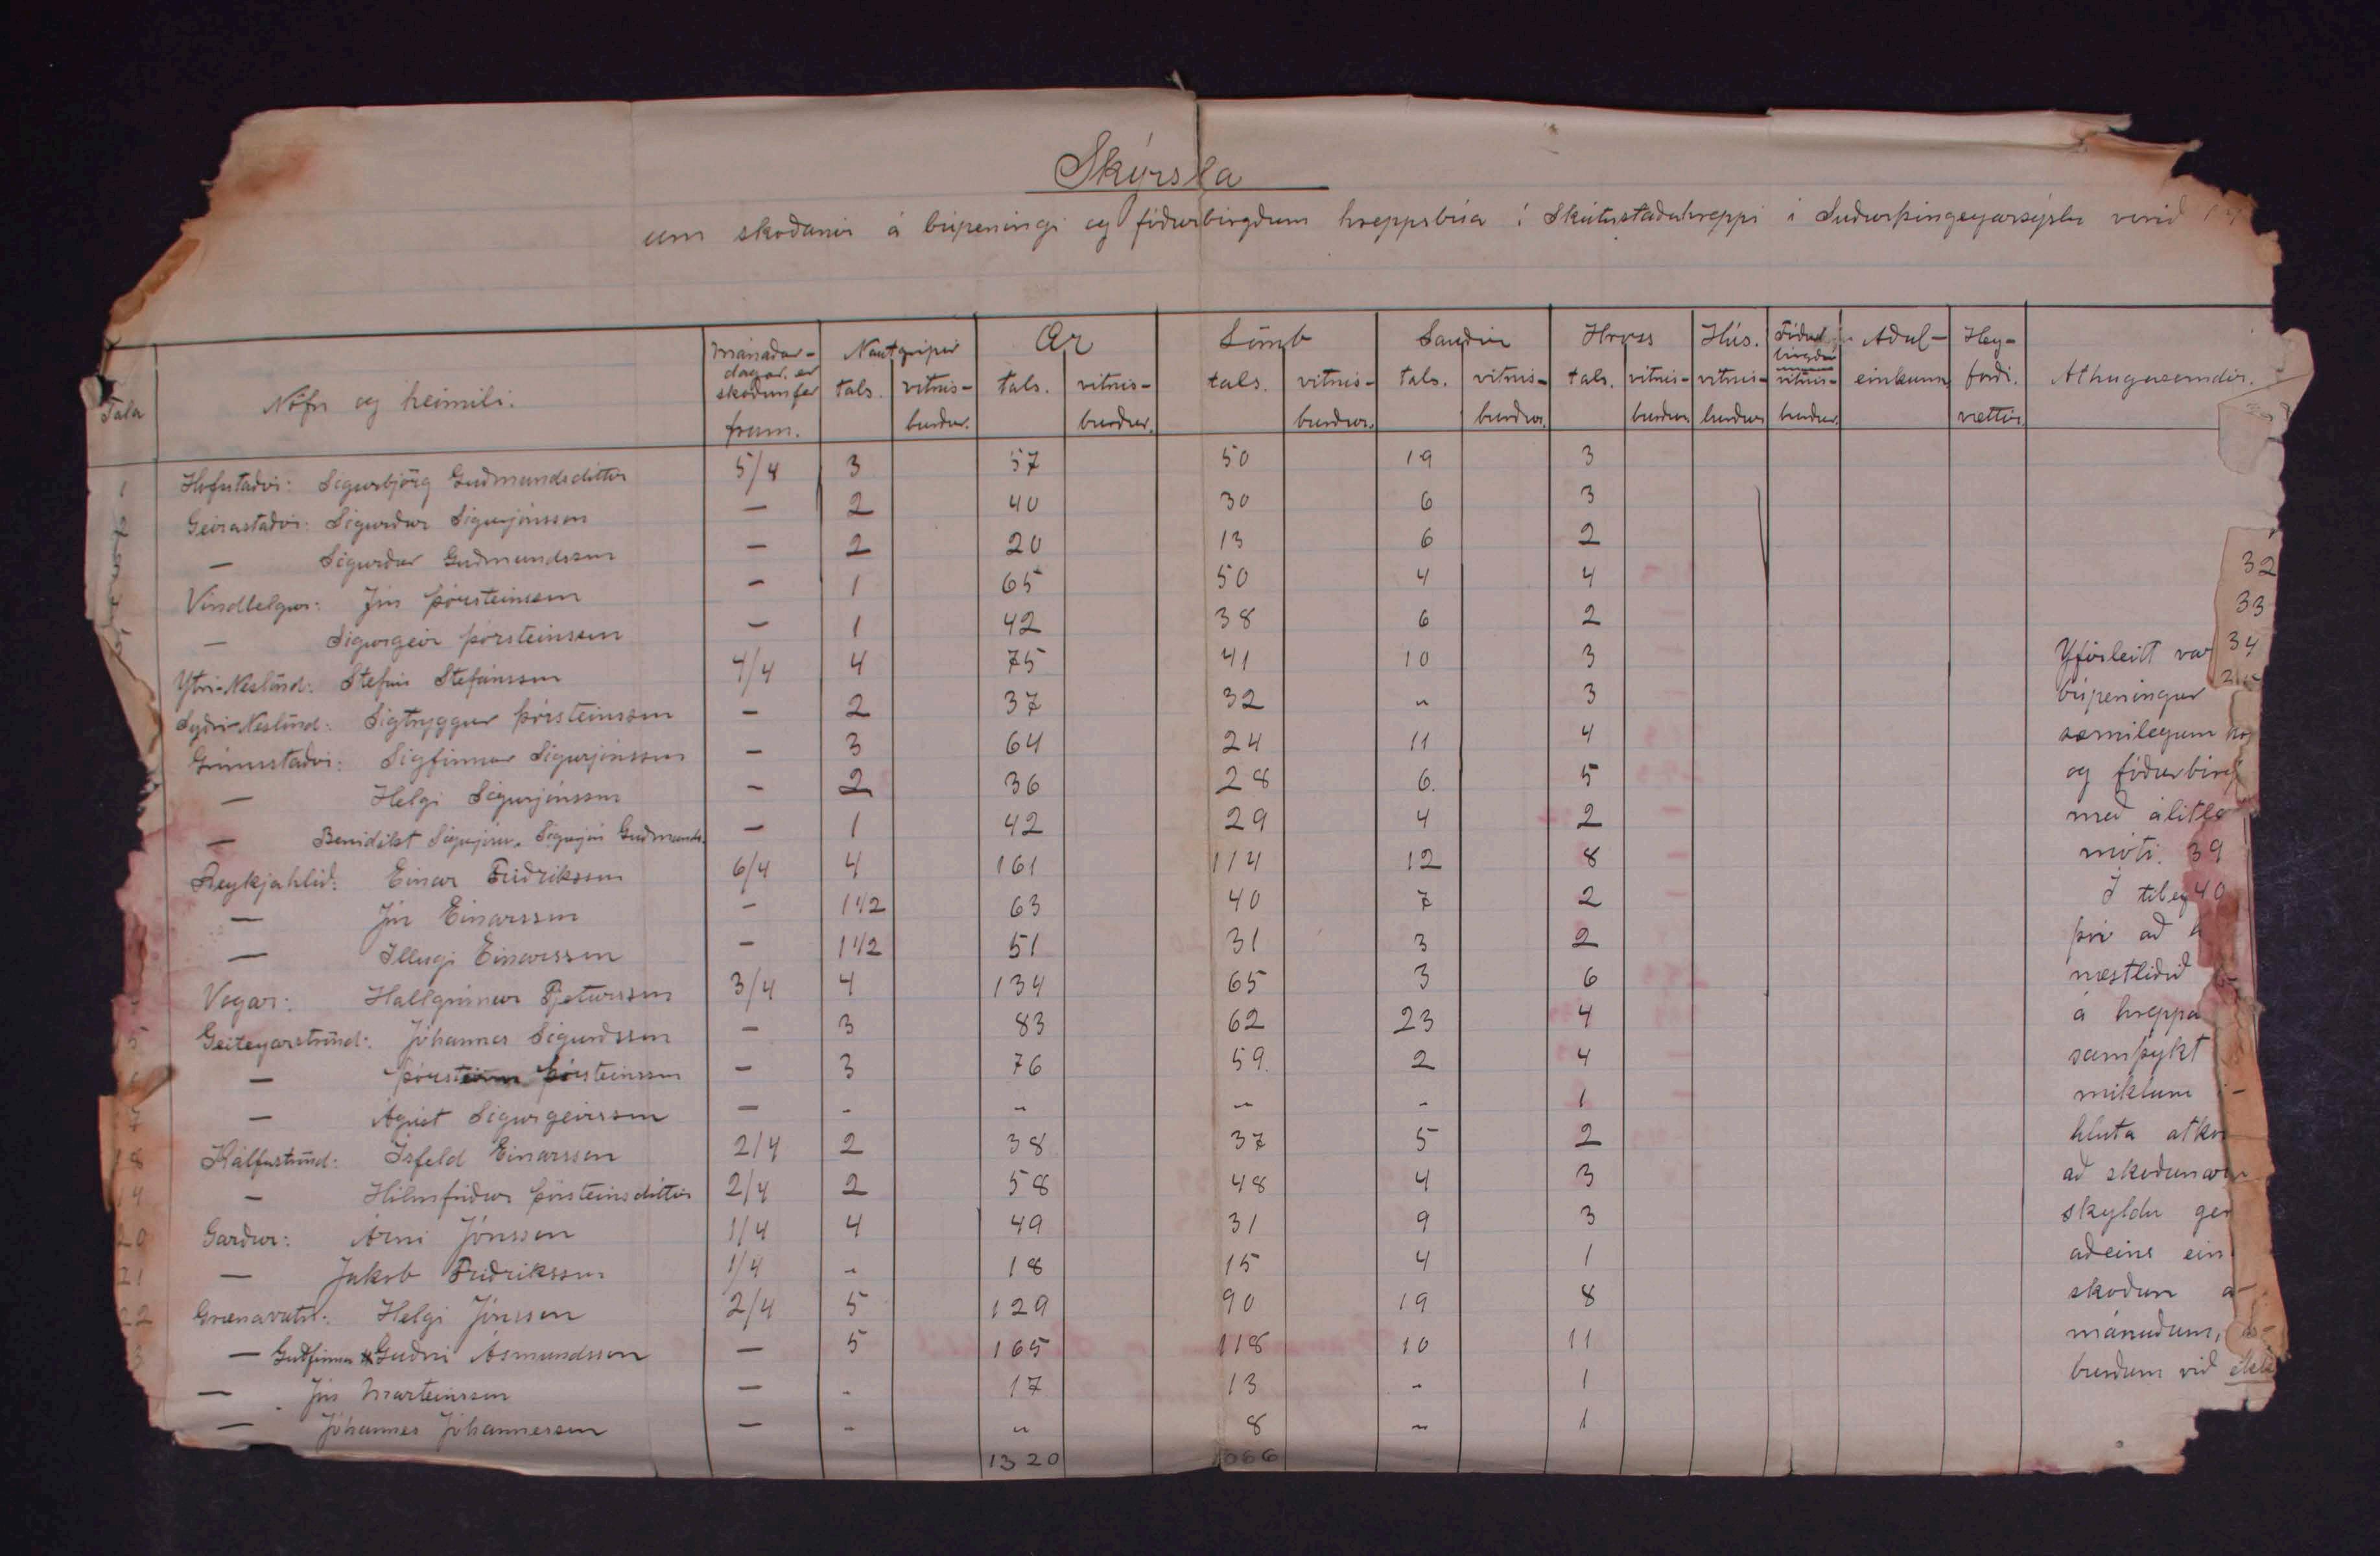 Skýrsla
um skoðanir á búpeningi og fóðurbirgðum hreppsbúa í Skútustaðahreppi í Suðurþingeyarsýslu vorið
Tala Nöfn og heimili. Mánaðar-dagar, er skoðun fer fram. Nautgripir tals. vitnis-burður. Ær tals. vitnis-burður. Lömb tals. vitnis-burður. Sauðir tals. vitnis-burður. Hross tals. vitnis-burður Hús. vitnis-burður Fóður birgðir vitnis-burður. Aðal-einkunn Hey-forði. vættir. Athugasemdir.
1 Hofstaðir: Sigurbjörg Guðmundsdóttir 5/4 3 57 50 19 3
Geirastaðir: Sigurður Sigurjónsson — 2 40 30 6 3
— Sigurður Guðmundsson — 2 20 13 6 2
Vindbelgur: Jón Þórsteinsson — 1 65 50 4 4 32
— Sigurgeir Þórsteinsson — 1 42 38 6 2 33
Ytri-Neslönd: Stefán Stefánsson 4/4 4 75 41 10 3 Yfirleitt var 34
Syðri-Neslönd: Sigtryggur Þórsteinsson — 2 37 32 „ 3 búpeningur
Grímsstaðir: Sigfinnur Sigurjónsson — 3 64 24 11 4 sæmilegum
— Helgi Sigurjónsson — 2 36 28 6. 5 og fóðurbirgð
— Benidikt Sigurjóns. Sigurjón Guðmunds. — 1 42 29 4 2 með álitle
Reykjahlíð: Einar Friðriksson 6/4 4 161 114 12 8 móti. 39
— Jón Einarsson - 1 1/2 63 40 7 2 Í tiley 40
— Illugi Einarsson — 1 1/2 51 31 3 2 því að
Vogar: Hallgrímur Pjetursson 3/4 4 134 65 3 6 næstliðið
5 Geiteyarströnd: Jóhannes Sigurðsson — 3 83 62 23 4 á hreppa
— Þórsteinn Þórsteinsson — 3 76 59. 2 4 samþykt
— Ágúst Sigurgeirsson — - „ „ - 1 miklum
18 Kálfaströnd: Ísfeld Einarsson 2/4 2 38 37 5 2 hluta atkv
19 — Hólmfríður Þórsteinsdóttir 2/4 2 58 48 4 3 að skoðunar
20 Garður: Árni Jónsson 1/4 4 49 31 9 3 skyldu ger
21 — Jakob Friðriksson 1/4 „ 18 15 4 1 aðeins ein
22 Grænavatn: Helgi Jónsson 2/4 5 129 90 19 8 skoðun a
3 — Guðfinna Guðni Ásmundsson — 5 165 118 10 11 mánuðum,
— Jón Marteinsson — - 17 13 - 1 burðum við
— Jóhannes Jóhannesson — - „ 8 „ 1
1320 1066